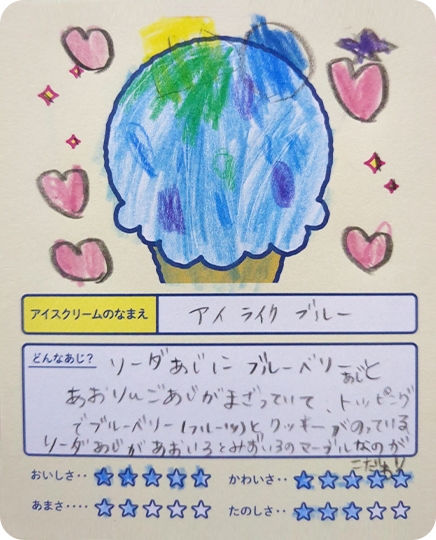 アイスクリームのなまえ
アイ ライク ブルー
どんなあじ?
ソーダあじに ブルーベリーあじと
あおりんごあじがまざっていて、トッピング
でブルーベリー(フルーツ)と クッキーがのっている
ソーダあじがあおいろとみずいろのマーブルなのが
こだわり
おいしさ‥ ★★★★★
かわいさ‥ ★★★★★
あまさ‥‥ ★★☆☆☆
たのしさ‥ ★★★☆☆